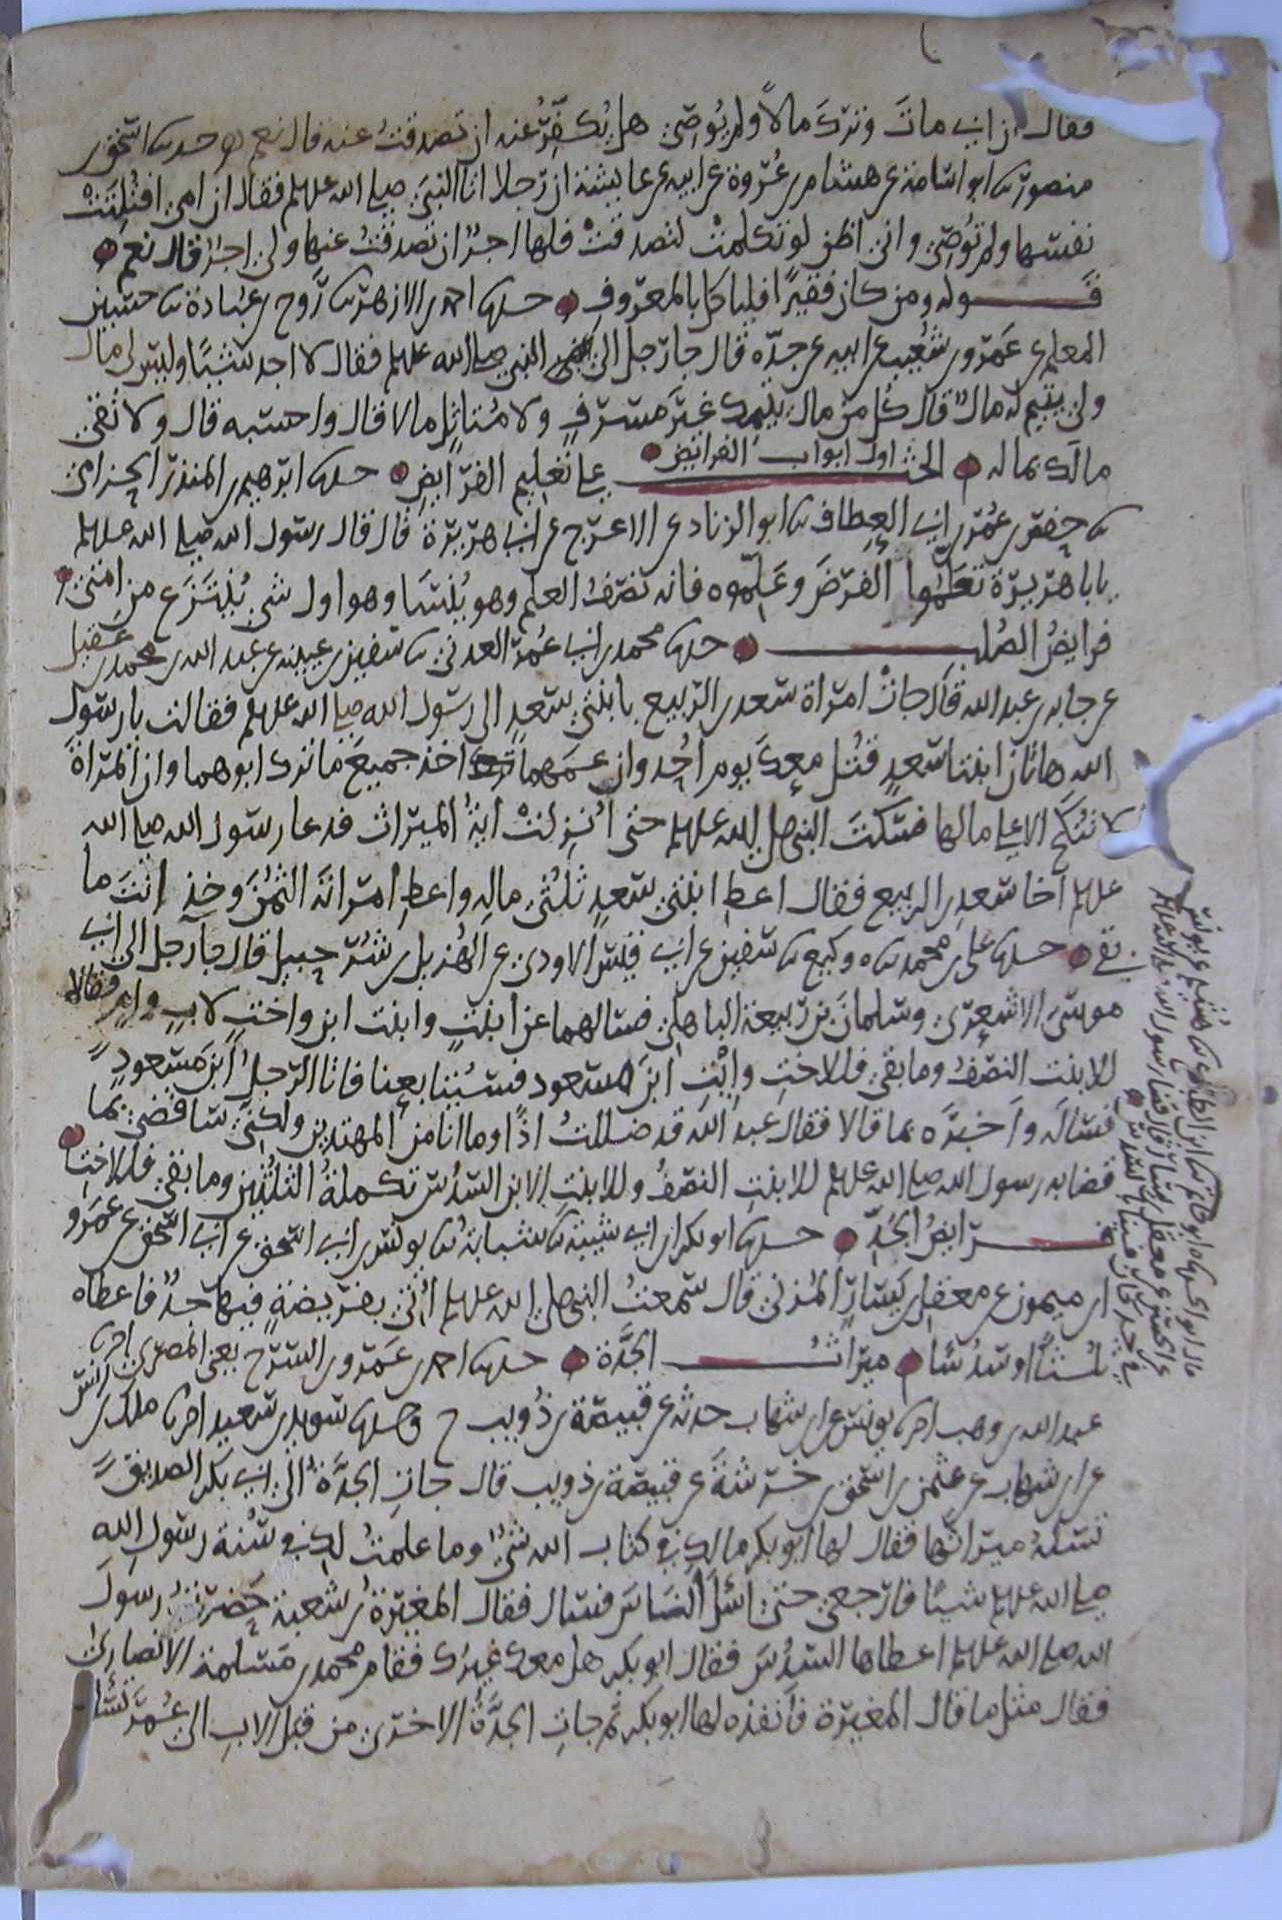 فقال ان ابي مات وترك مالاً ولم يُوصِ هل يُكفِّرُ عنه ان تصدقتُ عنه قال نعم حدثنا اسحق بن
منصور ثنا ابو اسامة عن هشام بن عُروة عن ابيه عن عايشة ان رجلا اتا النبيَّ صلى الله عليه وسلم فقال ان امي افتُلِتَتْ
نفسها ولم تُوصِ واني اظن لو تكلمتْ لتصدقتْ فلها اجرٌ ان تصدقتُ عنها ولي اجرٌ قال نعم
قوله ومن كان فقيرًا فلياكل بالمعروف حدثنا احمد بن الازهر ثنا رَوح بن عُبادة ثنا حسين
المعلم عن عَمرو بن شُعيب عن ابيه عن جدّه قال جا رَجل الى النبي صلى الله عليه وسلم فقال لا اجد شيئًا وليس لي مال
ولي يتيم له مال قال كُل من مال يتيمك غيرَ مسرفٍ ولا مُتاثِّلٍ مالا قال واحسبه قال ولا تَقي
مالَك بماله اول ابواب الفرايض الحثّ على تعليم الفرَايض حدثنا ابرهيم بن المنذر الحزامي
ثنا حفص بن عُمر بن ابي العِطاف ثنا ابو الزناد عن الاعرج عن ابي هريرة قال قال رسول الله صلى الله عليه وسلم
يابا هريرة تعلَّموا الفرَضَ وعَلِّموه فانه نصْفُ العلم وهو يُنسَا وهو اول شي يُنتَزَع من امتي
فرايضُ الصُلب حدثنا محمد بن ابي عُمر العدني ثنا سفين بن عيينة عن عبد الله بن محمد بن عقيل
عن جابر بن عبد الله قال جاتْ امراة سعد بن الربيع بابنتي سعدٍ الى رسول الله صلى الله عليه وسلم فقالت يا رسول
الله هاتان ابنتا سعدٍ قُتل معك يوم اُحُد وان عمهما اخذ جميعَ ما ترك ابوهما وان المرْاةَ
لا تنُكَح الا على مالها فسكتَ النبي صلى الله عليه وسلم حتى اُنزِلتْ ايةُ الميراث فدعا رسول الله صلى الله
عليه وسلم اخا سعدِ بن الربيع فقال اعطِ ابنتي سعدٍ ثلُثيْ مالِهِ واعطِ امراتَه الثمُنَ وخذ انتَ ما
بقي حدثنا علي بن محمد ثنا وكيع ثنا سفين عن ابي قيس الاودي عن الهُزيل بن شُرحبيل قال جآ رجل الى ابي
موسَى الاشعري وسلمان بن رَبيعة الباهلي فسالهما عن ابنتٍ وابنت ابن واختٍ لابٍ وامٍ فقالا
للابنت النصْفُ وما بقي فللاختِ وايْتِ ابنَ مسعود فسيُتابعنا فاتا الرجلُ ابنَ مسعودٍ
فسالَه واخبرَه بما قالا فقال عبد الله قد ضللتُ اذًا وما انا من المهتدين ولكني ساقضي بما
قضا به رسول الله صلى الله عليه وسلم للابنتِ النصْفُ وللابنتِ الابن السُدُس تكملةُ الثلثين وما بقي فللاختِ
فرايضُ الجَدّ حدثنا ابو بكر بن ابي شيبة ثنا شبابة ثنا يونس بن ابي اسحق عن ابي اسحق عن عمرو
ابن ميمون عن معقل بن يَسارٍ المُزني قال سمعتُ النبي صلى الله عليه وسلم اُتيَ بفريضةٍ فيها جدٌّ فاعطاه
ثلُثًا او سُدُسًا ميراثُ الجَدَّة حدثنا احمد بن عَمرو بن السرح يعني المصري
عبد الله بن وهب يونس عن ابن شهاب حدثه عن قبيصة بن ذُويب ح وحدثنا سويد بن سعيد ملك بن انس
عن ابن شهاب عن عثمن بن اسحق بن خَرشةَ عن قبيصة بن ذويب قال جاتِ الجدَّةُ الى ابي بكر الصديق
تسلهُ ميراثَها فقال لها ابو بكر مالكِ في كتاب الله شيٌ وما علمتُ لكِ في سُنة رسول اللهِ
صلى الله عليه وسلم شيئًا فارجعي حتى اسْلَ النَاسَ فسال فقال المغيرةُ بن شعبة حَضرتُ رسولَ
الله صلى الله عليه وسلم اعطاها السُدُسَ فقال ابو بكر هل معك غيرك فقام محمد بن مَسلمة الانصاري
فقال مثل ما قال المغيرة فانفذه لها ابو بكر ثم جاتِ الجدَّةُ الاخرى من قبل الاب الى عُمَر تسْله